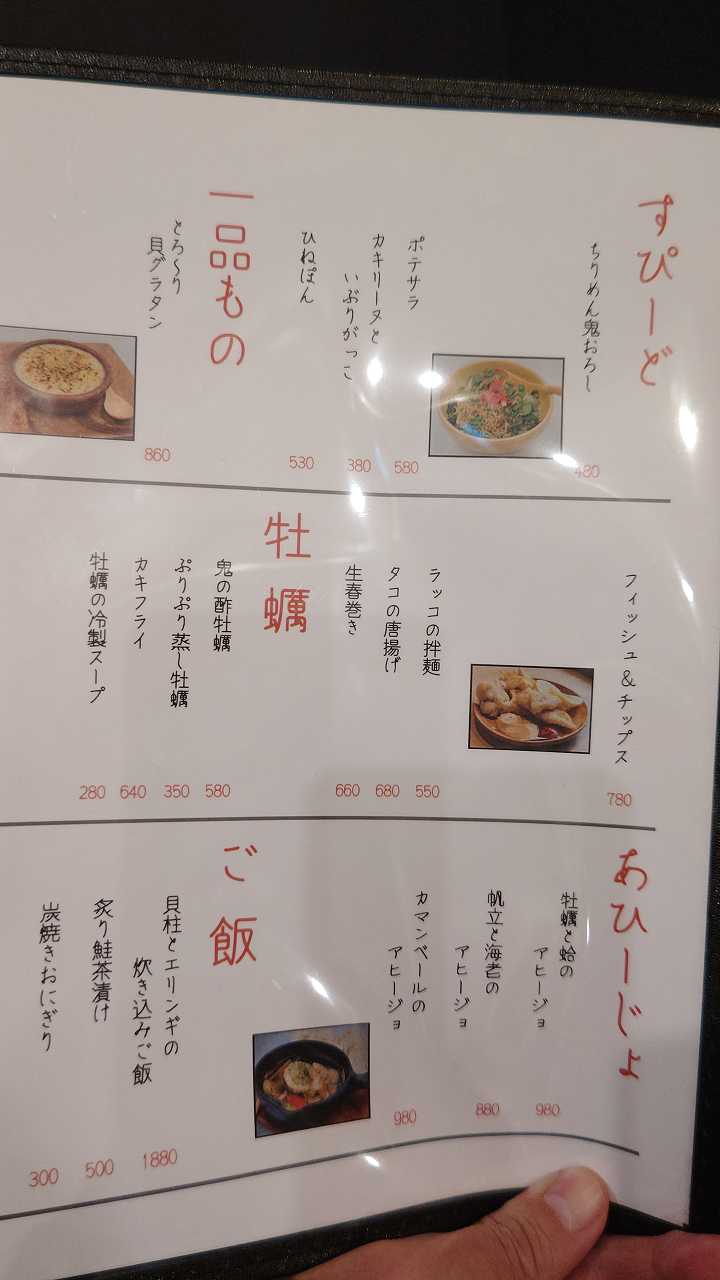 すぴーど
ちりめん鬼おろし
480
ポテサラ
580
カキリーヌと
いぶりがっこ
380
ひねぽん
530
一品もの
とろ〜り
貝グラタン
860
フィッシュ&チップス
780
ラッコの拌麺
550
タコの唐揚げ
680
生春巻き
660
牡蠣
鬼の酢牡蠣
580
ぷりぷり蒸し牡蠣
350
カキフライ
640
牡蠣の冷製スープ
280
あひーじょ
牡蠣と蛤の
アヒージョ
980
帆立と海老の
アヒージョ
880
カマンベールの
アヒージョ
980
ご飯
貝柱とエリンギの
炊き込みご飯
1880
炙り鮭茶漬け
500
炭焼きおにぎり
300